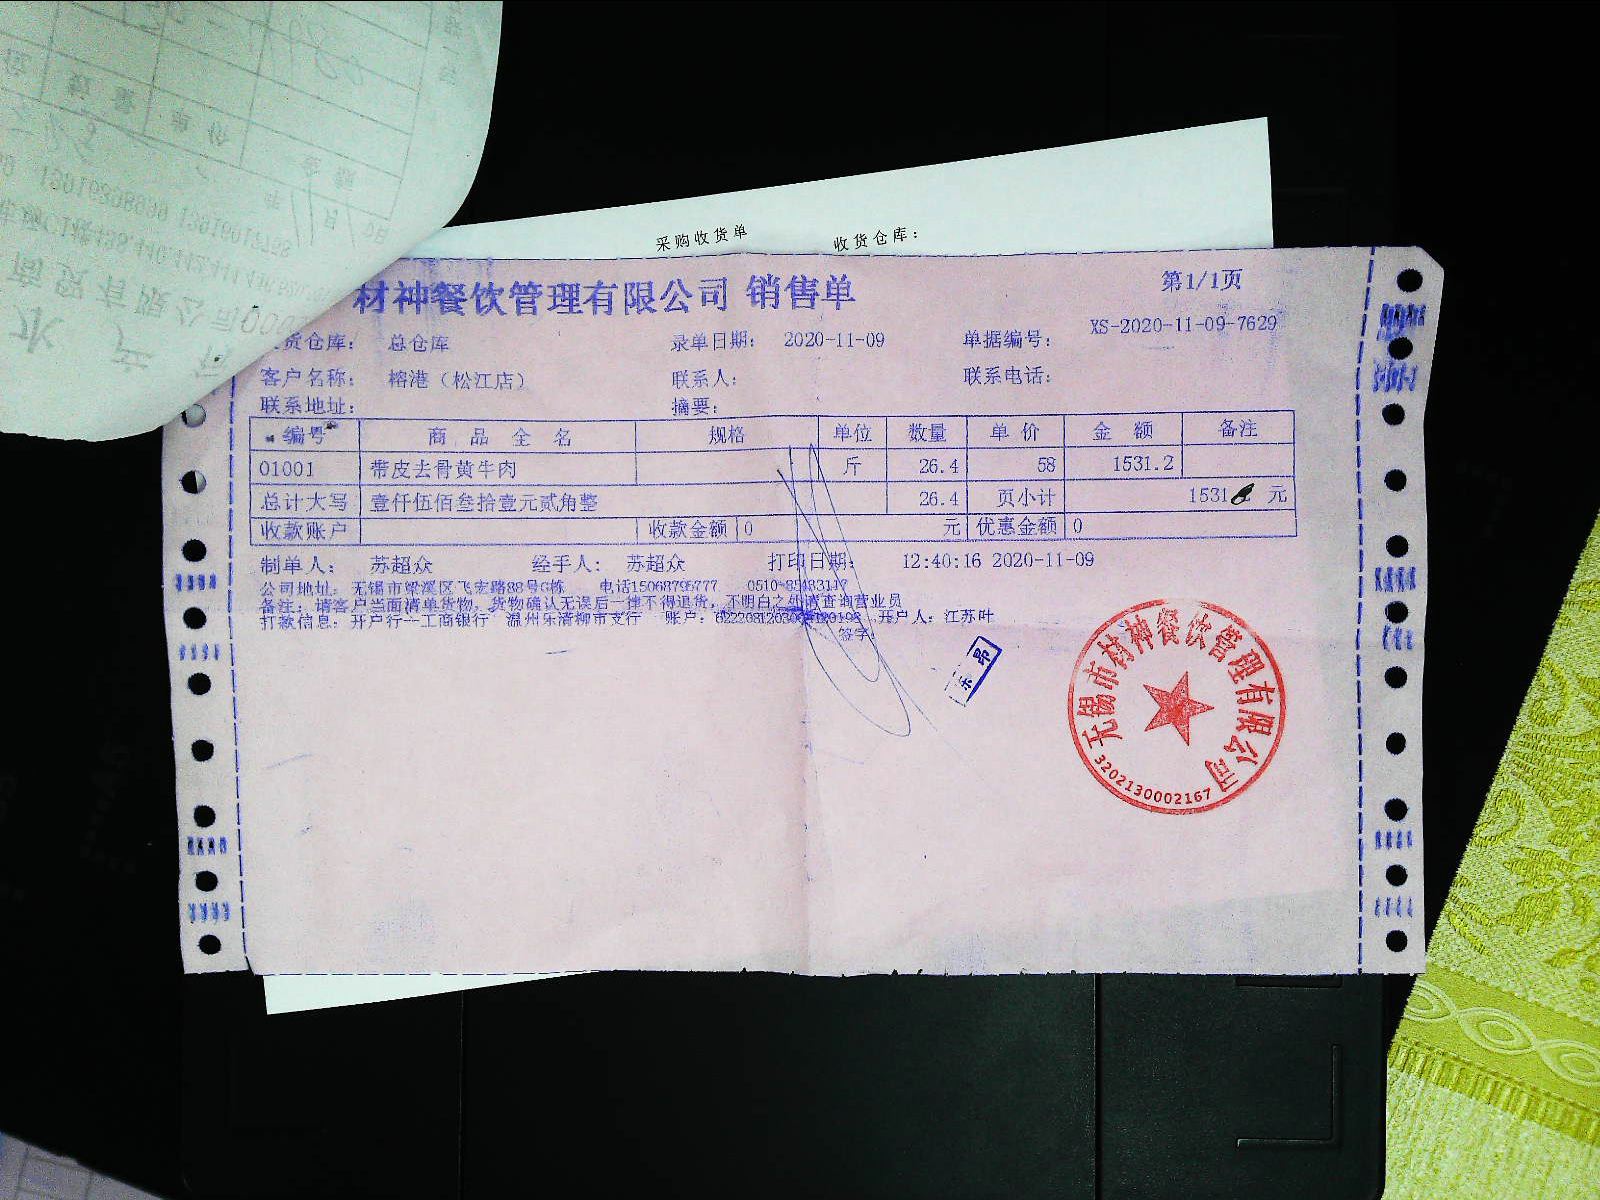 采购收货单 收货仓库：
材神餐饮管理有限公司 销售单 第1/1页
货仓库： 总仓库 录单日期： 2020-11-09 单据编号： XS-2020-11-09-7629
客户名称： 榕港（松江店） 联系人： 联系电话：
联系地址： 摘要：
编号 商品全名 规格 单位 数量 单价 金额 备注
01001 带皮去骨黄牛肉 斤 26.4 58 1531.2
总计大写 壹仟伍佰叁拾壹元贰角整 26.4 页小计 1531 元
收款账户 收款金额 0 元 优惠金额 0
制单人： 苏超众 经手人： 苏超众 打印日期： 12:40:16 2020-11-09
公司地址： 无锡市梁溪区飞宏路88号G栋 电话15068795777 0510-85483117
备注：请客户当面清单货物，货物确认无误后一律不得退货，不明白之处请查询营业员
打款信息：开户行--工商银行 温州乐清柳市支行 账户： 开户人：江苏叶
签字：
昂
无锡市材神餐饮管理有限公司
3202130002167